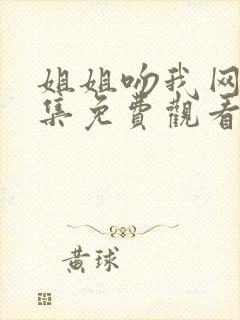 姐姐吻我网
集免費觀看
黄球